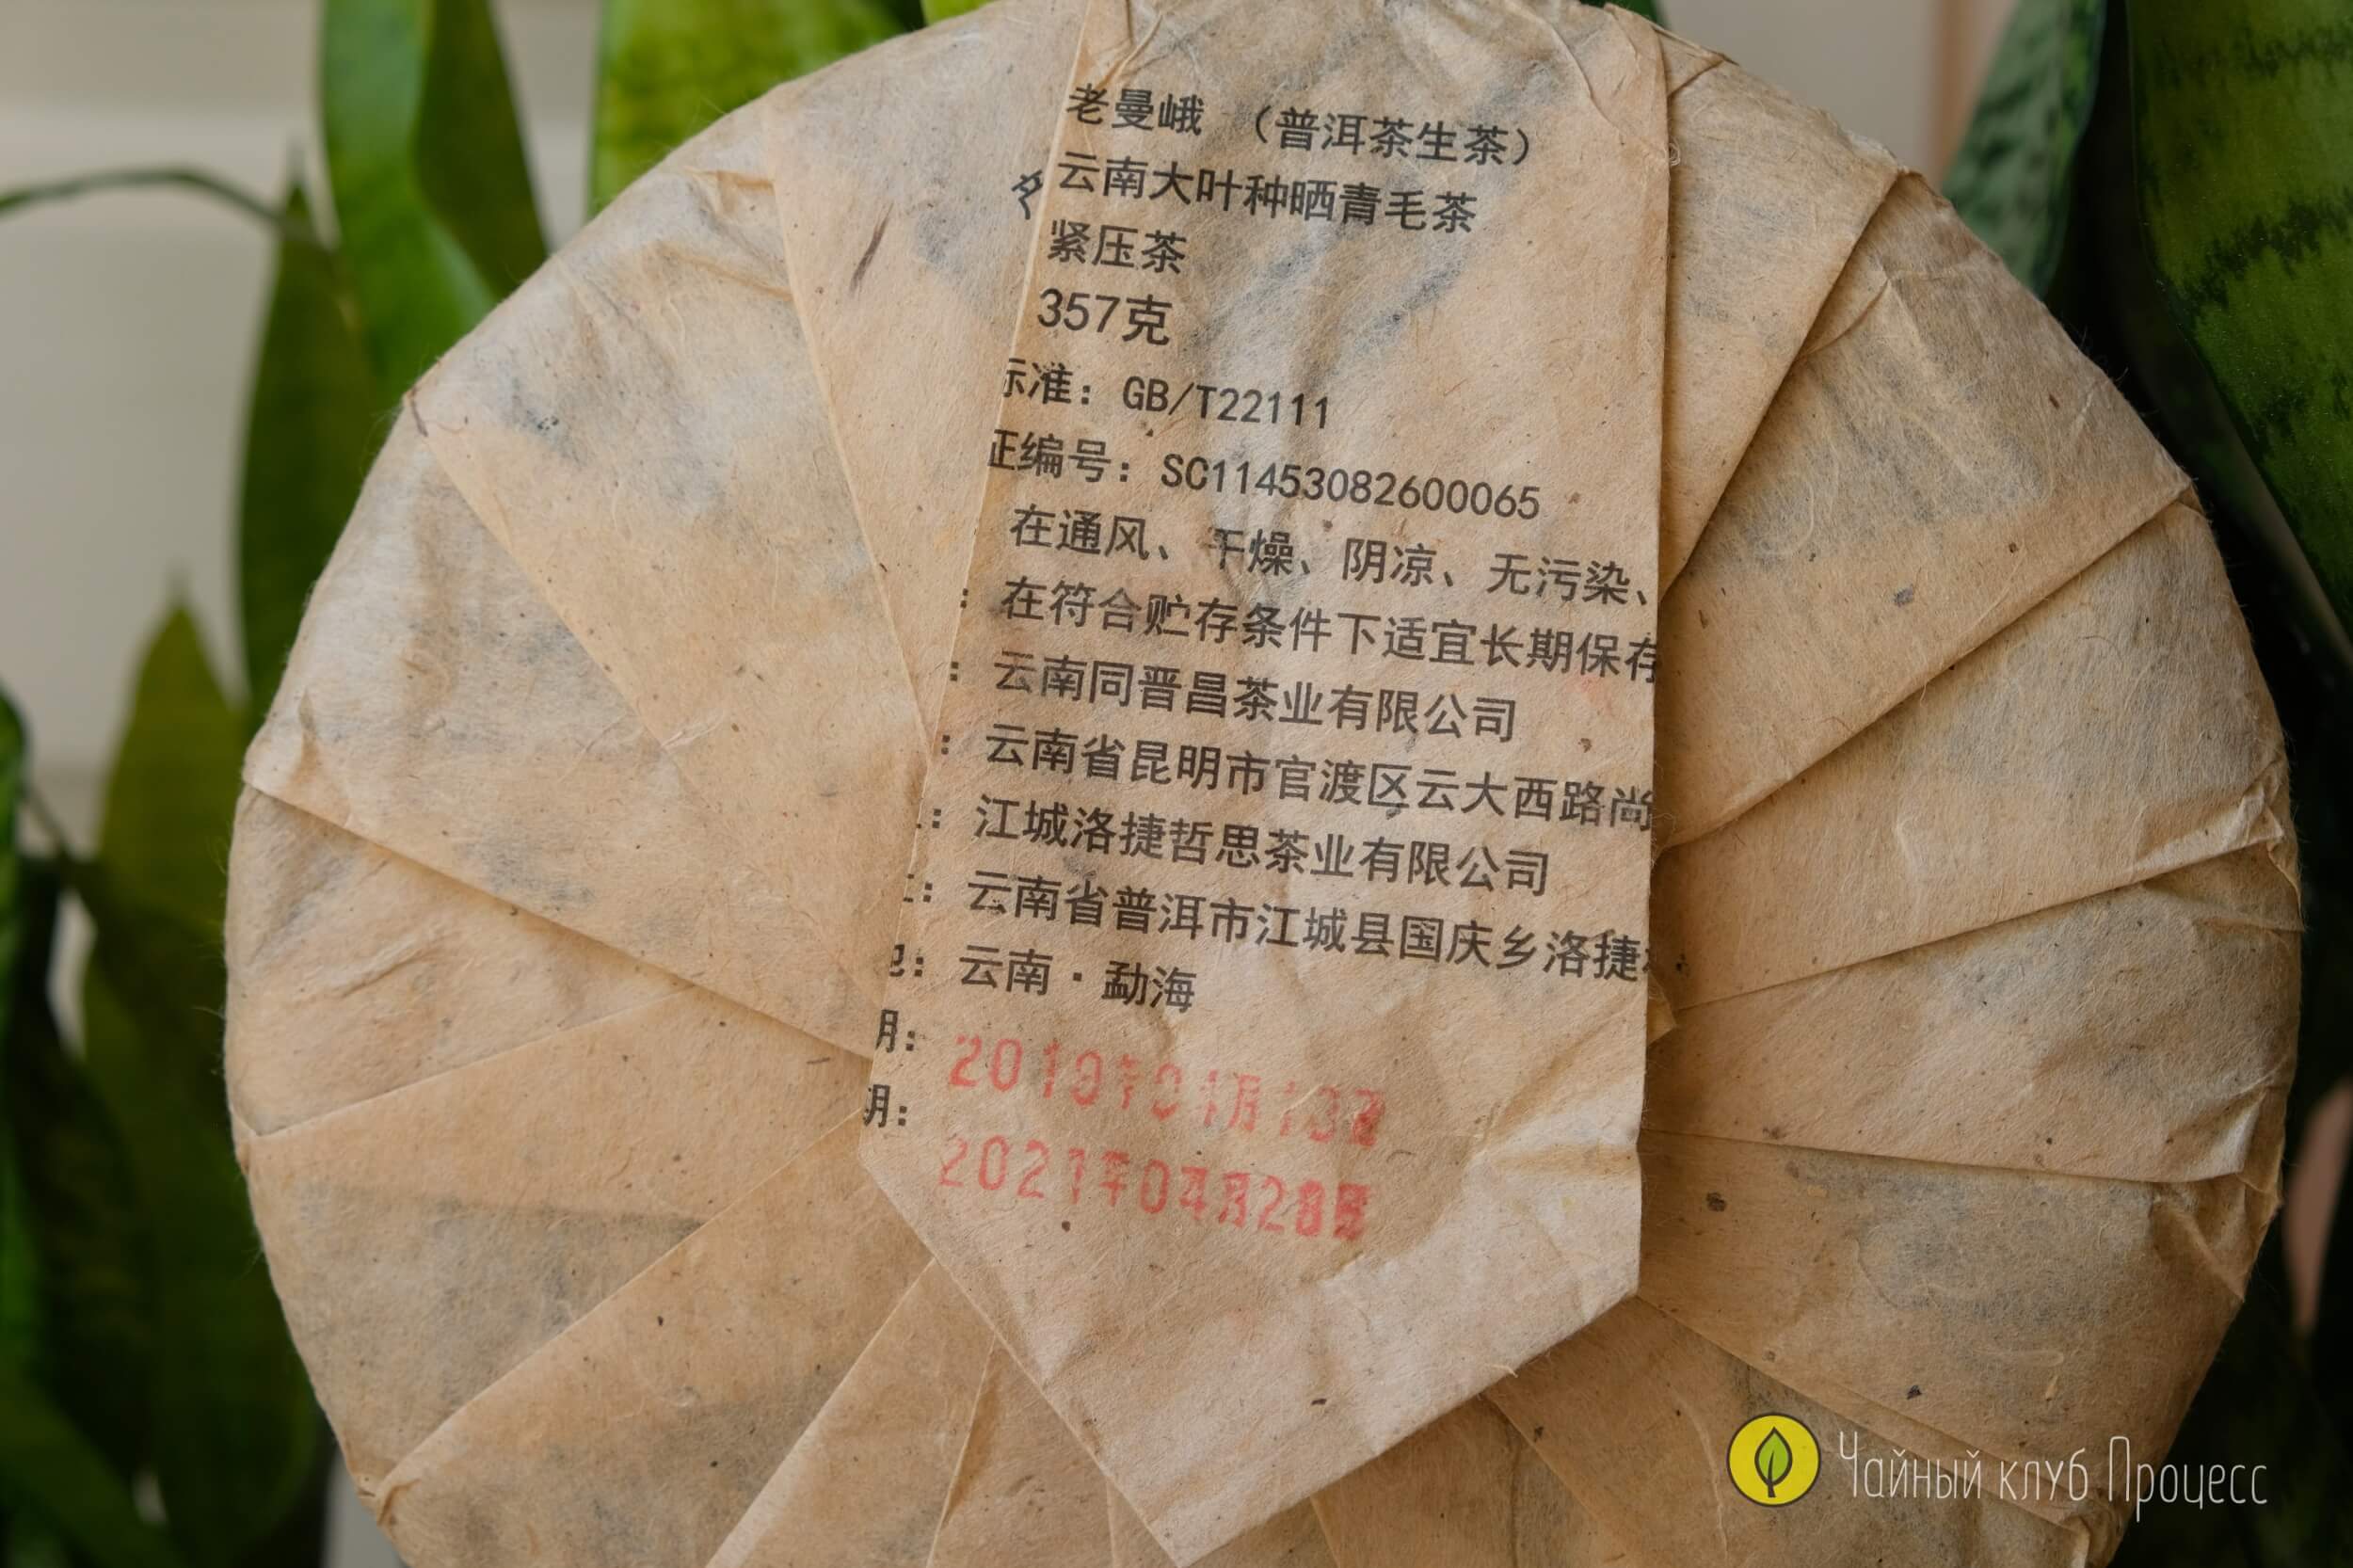 老曼峨 （普洱茶生茶）
云南大叶种晒青毛茶
紧压茶
357克
标准：GB/T22111
证编号：SC11453082600065
在通风、干燥、阴凉、无污染、
：在符合贮存条件下适宜长期保存
：云南同晋昌茶业有限公司
：云南省昆明市官渡区云大西路尚
：江城洛捷哲思茶业有限公司
：云南省普洱市江城县国庆乡洛捷
：云南·勐海
期：
2019年04月13日
期：
2021年04月28日
Чайный клуб Процесс